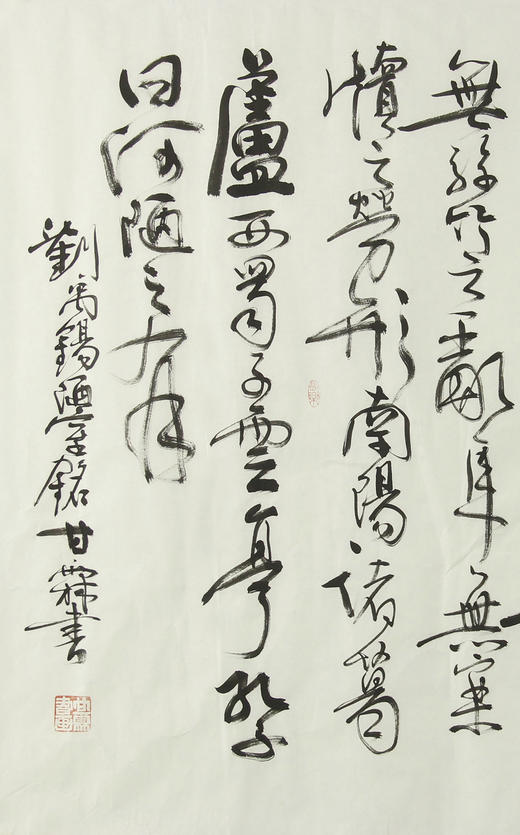 無絲竹之亂耳無案
牘之勞形南陽諸葛
蘆西蜀子雲亭孔子
曰何陋之有
劉禹錫陋室銘甘霖書